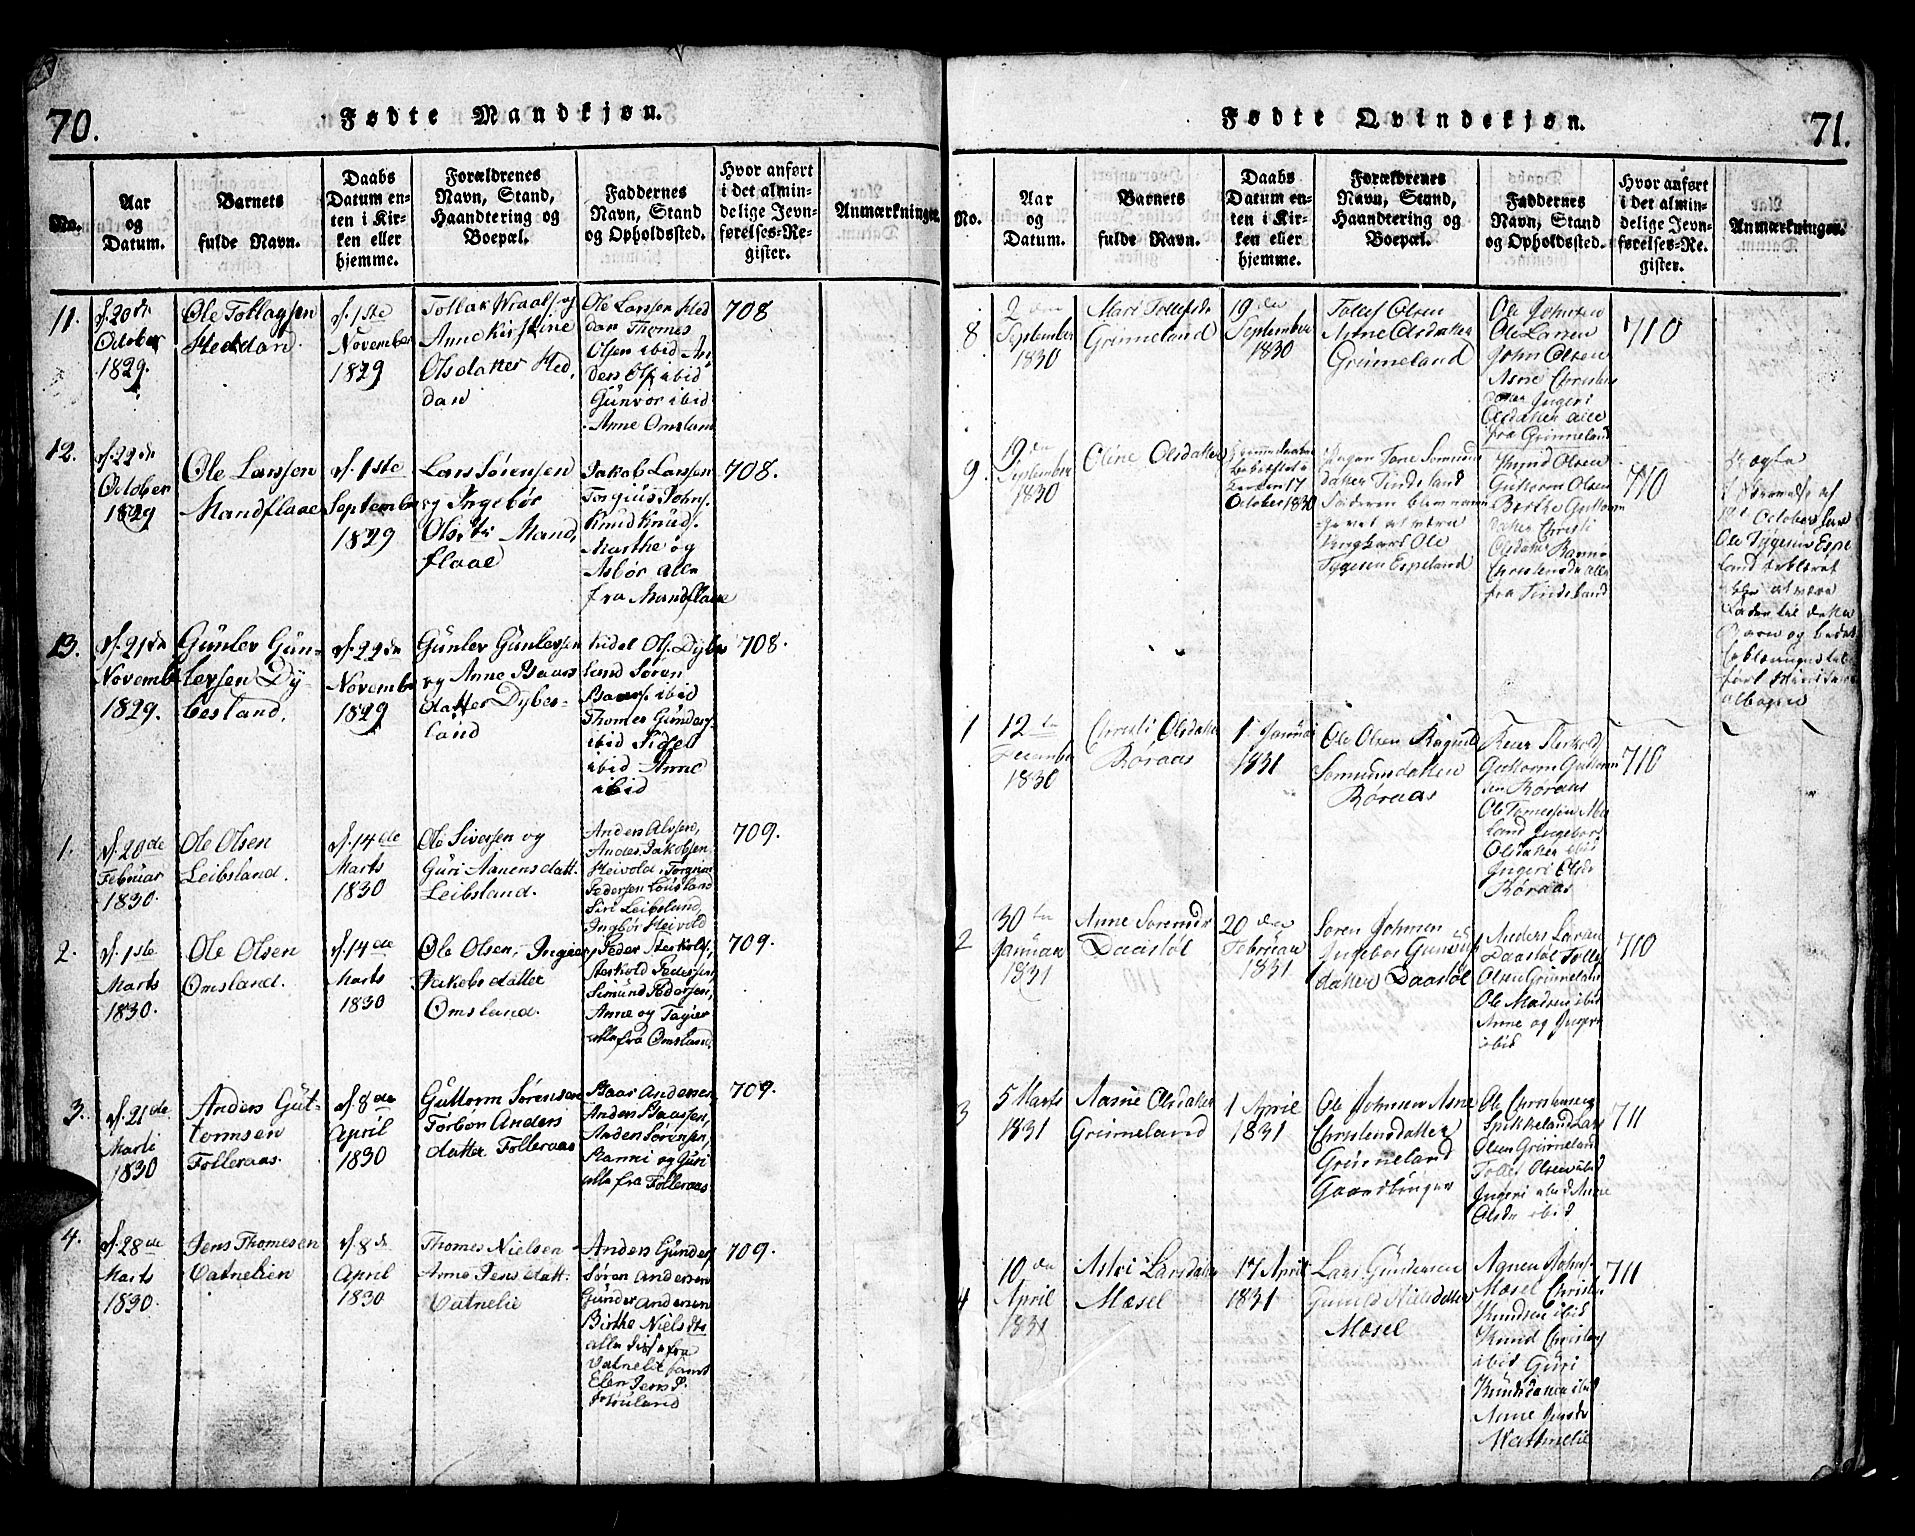 70.
Fødte Mandkjøn.
No.
Aar
og
Datum.
Barnets
fulde Navn.
Daabs
Datum en-
ten i Kir-
ken eller
hjemme.
Forældrenes
Navn, Stand,
Haandtering og
Boepæl.
Faddernes
Navn, Stand
og Opholdssted.
Hvor anført
i det almin-
delige Jevn-
førelses-Re-
gister.
Anmærkninger.
11.
d. 20de
October
1829.
Ole Tollagsen
Heddan.
d. 1ste
November
1829
Tollak Wraals. og
Anne Kirstine
Olsdatter Hed,
dan
Ole Larssen Hed
dan Thomes
Olsen ibid An
ders Ols. ibid
Gunvor ibid
Anne Omsland
708
12.
d. 22de
October
1829
Ole Larssen
Mandflaae
d. 1ste
September
1829
Lars Sørensen
og Ingebor
Ols. tr Mand,
flaae
Jakob Larssen
Torgius Johns.
Knud Knuds.
Marthe og
Asbor alle
fra Mandflaae
708.
13.
d. 21de
Novemb
1829.
Gunlev Gun-
levsen Dy-
besland.
d. 22de
November
1829
Gunlev Gunlevsen
og Anne Baars
datter Dybes-
land
Kidel Ols. Dybes
land Søren
Baars. ibid
Thomes Gunders.
ibid Sidel
ibid Anne
ibid
708.
1.
d. 20de
Februar
1830.
Ole Olsen
Leibsland.
d. 14de
Marts
1830
Ole Sivertsen og
Guri Aanensdatt.
Leibsland.
Anders Alvsen,
Anders Jakobsen
Heivold, Torgius
Pedersen Lousland
Siri Leibsland,
Ingbor Heivold
709.
2.
d. 1ste
Marts
1830.
Ole Olsen
Omsland.
d. 14de
Marts
1830
Ole Olsen, Ingier
Jakobsdatter
Omsland.
Peder Sterkols.
Sterkold Pedersen
Simund Pedersen,
Anne og Tagier
alle fra Omsland.
709.
3.
d. 21de
Marti
1830
Anders Gut-
tormsen
Folleraas.
d. 8de
April
1830
Guttorm Sørensen
Torbor Anders
datter Folleraas
Baar Andersen
Anders Baarsen,
Anders Sørensen,
Ranni og Guri
alle fra Folleraas
709.
4.
d. 28de
Marts
1830.
Jens Thomesen
Vatnelien
d. 8d
April
1830
Thomes Nielsen
Anne Jens datt.
Vatnelie
Anders Gunders.
Søren Andersen
Gunder Andersen
Birthe Nielsdtr
alle disse fra
Vatnelie samt
Elen Jens D.
Houland
709.
Fødte Qvindekjøn.
71.
No.
Aar
og
Datum.
Barnets
fulde Navn.
Daabs
Datum en-
ten i Kir-
ken eller
hjemme.
Forældrenes
Navn, Stand,
Haandtering og
Boepæl.
Faddernes
Navn, Stand
og Opholdssted.
Hvor anført
i det almin-
delige Jevn-
førelses-Re-
gister.
Anmærkninger.
8
2den
September
1830
Mari Tollefsdr
Grimeland
19den
September
1830
Tollef Olsen
Asne Olsdatter
Grimeland
Ole Johnsen
Ole Larsen
John Olsen
Asne Christens
datter Ingeri
Olsdatter alle
fra Grimeland
710
9.
19den
September
1830
Oline Olsdatter
Hjemmedøbt
October 1830
Tone Somund
datter Tindeland
Faderen
Ole
Tygesen Espeland
Knud Olsen
Guttorm Olsen
Berthe Guttorm
datter Christi
Olsdatter
Christensdr alle
fra Tindeland
710
October
Ole Tygesen Espe
land erklæret
at være
Fader til dette
Barn og
1
12te
December
1830
Christi Olsdatter
Røraas
1 Januar
1831
Ole Olsen Ragnild
Somundsdatter
Røraas
Guttorm Guttorm
sen Røraas
Ole Tomessen
land Ingebor
Olsdatter ibid
Ingeri Olsdr
Røraas
710
2
30te
Januar
1831
Anne Sorensdr
Daasløl
20den
Februar
1831
Soren Johnsen
Ingebor Gunulfs
datter Daasløl
Anders Larsen
Daasløl Tollef
Olsen Grimeland
Ole Madsen ibid
Anne og Ingeri
ibid
710
3
5 Marts
1831
Aasne Olsdatter
Grimeland
1 April
1831
Ole Johnsen Asne
Christensdatter
Grimeland
Gaardbruger
Ole Christensen
Spikkeland Lars
Olsen Grimeland
Tollef Olsen ibid
Ingeri ibid Anne
Olsdr ibid
711
4
10den
April
1831
Astri Larsdatter
Mosel
17 April
1831
Lars Gundersen
Gunild Nilsdatter
Mosel
Agnen Johns.
Mosel Christen
Knudsen ibid
Knud Christens
ibid Guri
Knudsdatter ibid
Anne Jensdr
Watnelie
711